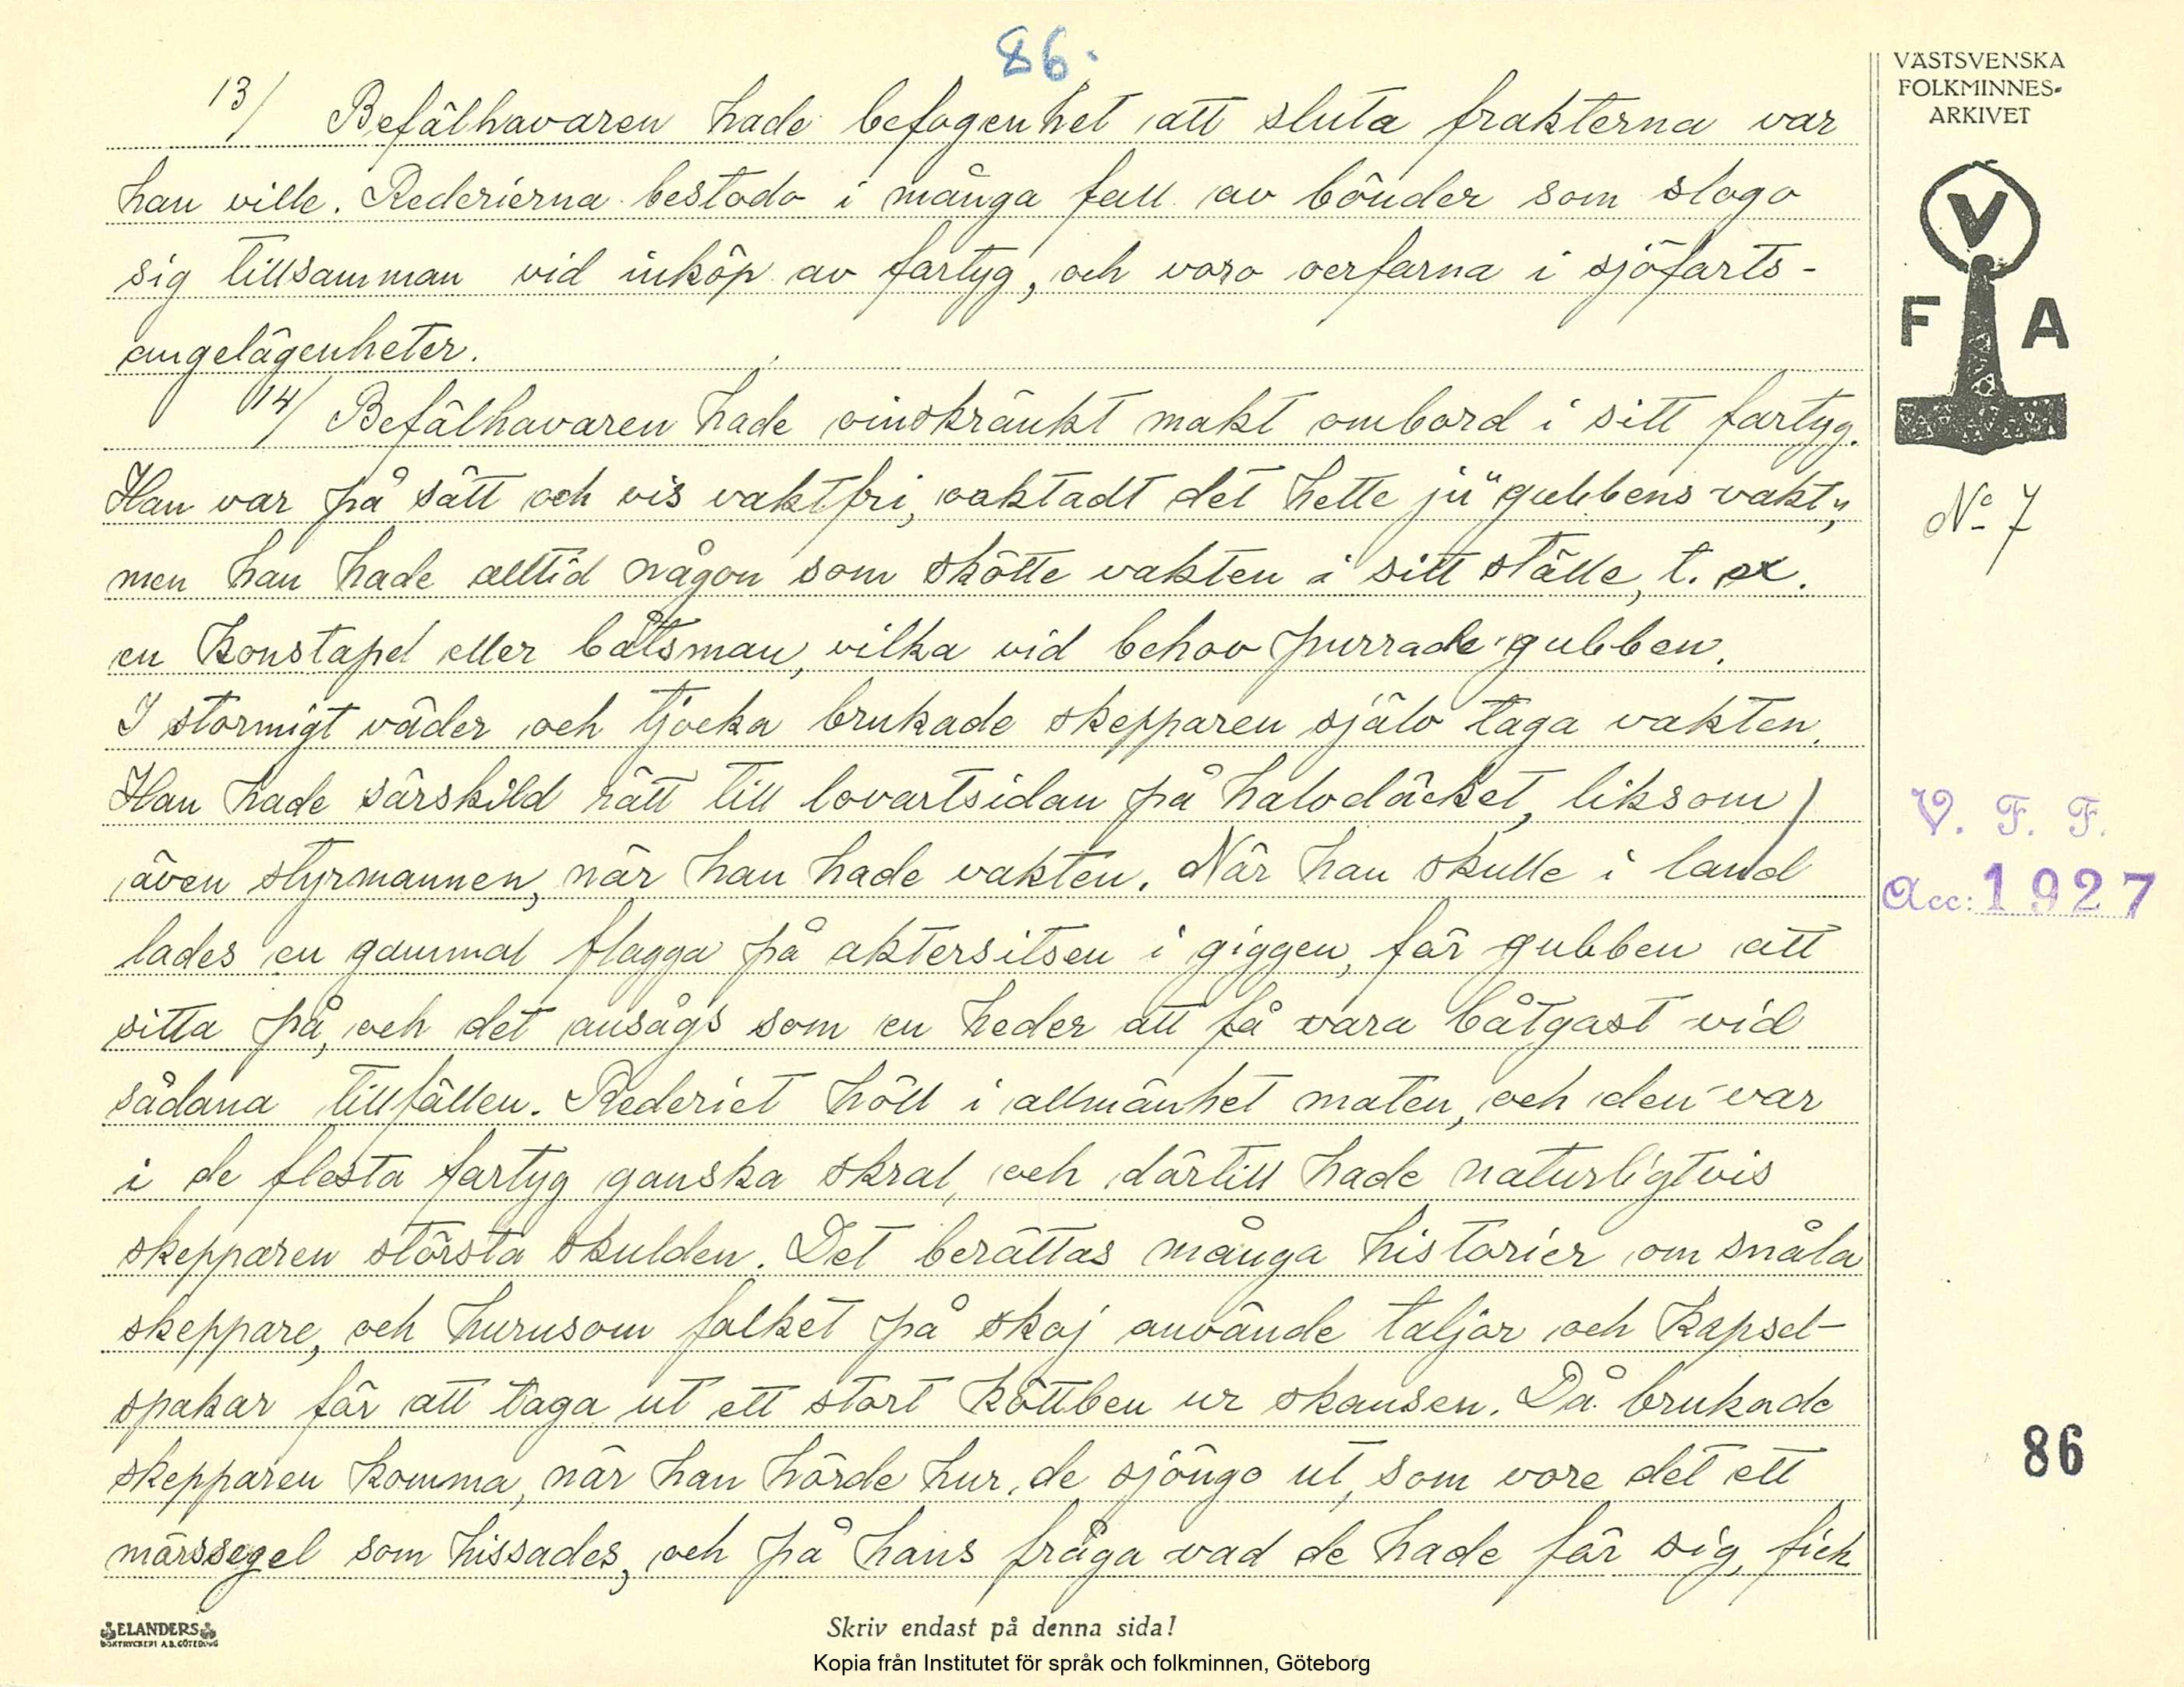 86.
13/ Befälhavaren hade befogenhet att sluta frakterna var
han ville. Rederierna bestodo i många fall av bönder som slogo
sig tillsamman vid inköp av fartyg, och voro oerfarna i sjöfarts-
angelägenheter.
14/ Befälhavaren hade oinskränkt makt ombord i sitt fartyg.
Han var på sätt och vis vaktfri, oaktadt det hette ju "gubbens vakt",
men han hade alltid någon som skötte vakten i sitt ställe, t. ex.
en konstapel eller båtsman, vilka vid behov purrade gubben.
I stormigt väder och tjocka brukade skepparen själv taga vakten.
Han hade särskild rätt till lovartsidan på halvdäcket, liksom
även styrmannen, när han hade vakten. När han skulle i land
lades en gammal flagga på aktersitsen i giggen, för gubben att
sitta på, och det ansågs som en heder att få vara båtgast vid
sådana tillfällen. Rederiet höll i allmänhet maten, och den var
i de flesta fartyg ganska skral, och därtill hade naturligtvis
skepparen största skulden. Det berättas många historier om snåla
skeppare, och hurusom folket på skoj använde taljor och kapsel-
spakar för att taga ut ett stort köttben ur skansen. Då brukade
skepparen komma, när han hörde hur de sjöngo ut, som vore det ett
märssegel som hissades, och på hans fråga vad de hade för sig, fick
VÄSTSVENSKA
FOLKMINNES-
ARKIVET
V
F A
No 7
V. F. F.
Acc: 1927
86
ELANDERS
BOKTRYCKERI A.B. GÖTEBORG
Skriv endast på denna sida!
Kopia från Institutet för språk och folkminnen, Göteborg